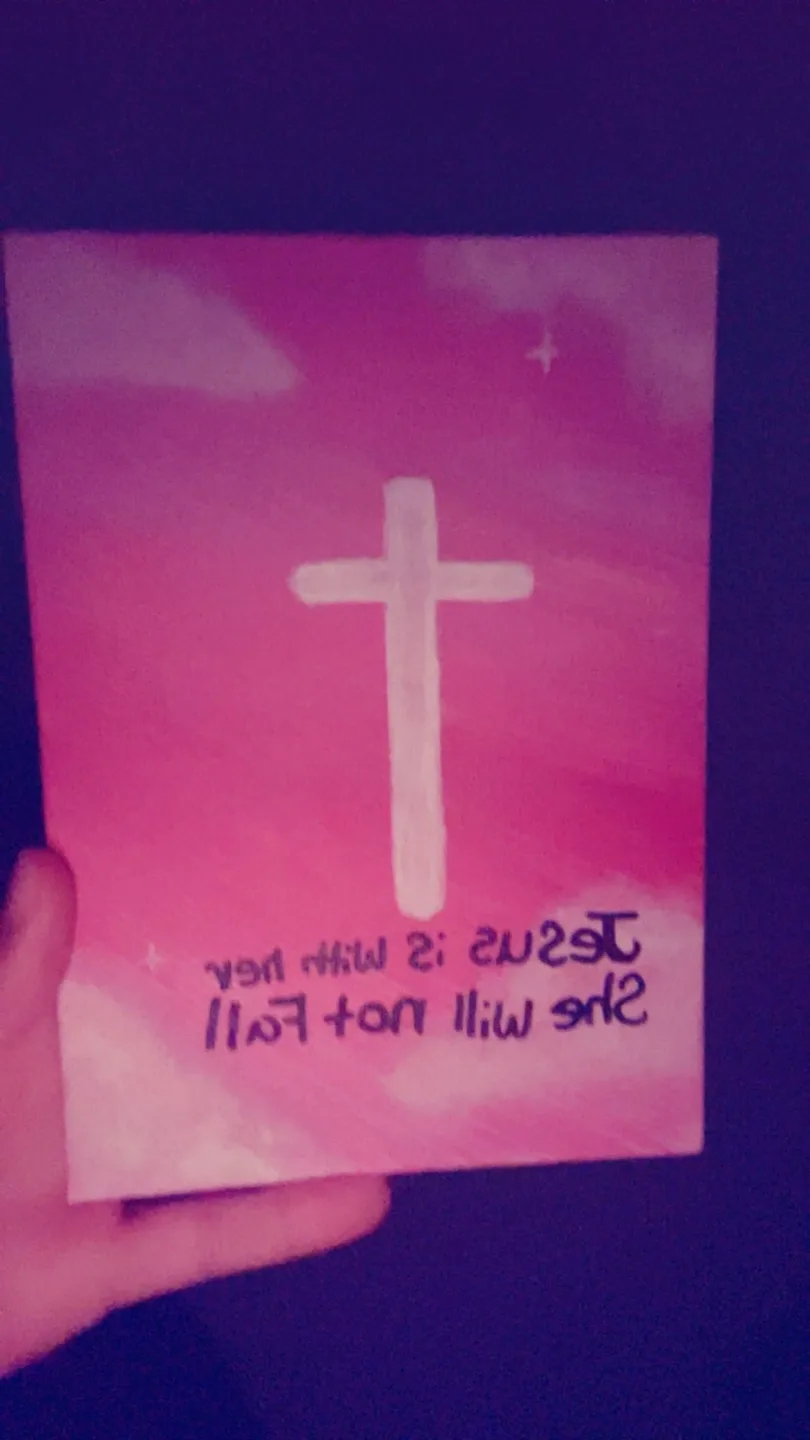 Jesus is with her
She will not Fall